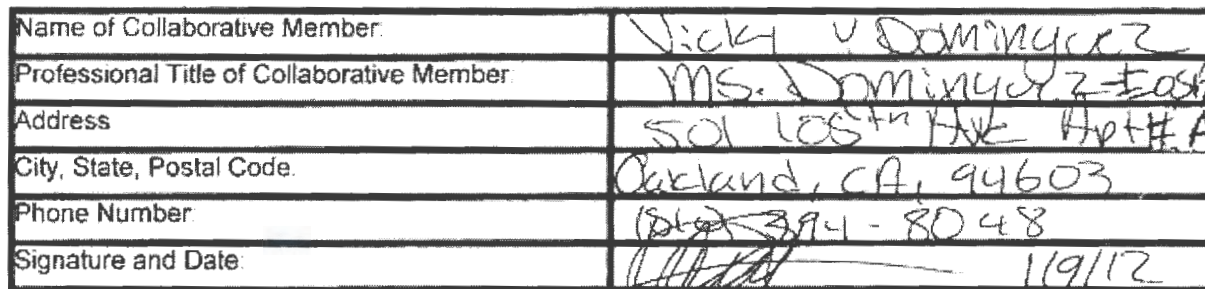 Name of Collaborative Member: Vicky V Dominguez
Professional Title of Collaborative Member: Ms. Dominguez
Address 501 105th Ave Apt#
City, State, Postal Code: Oakland, CA, 94603
Phone Number: 394-8048
Signature and Date: 1/9/12